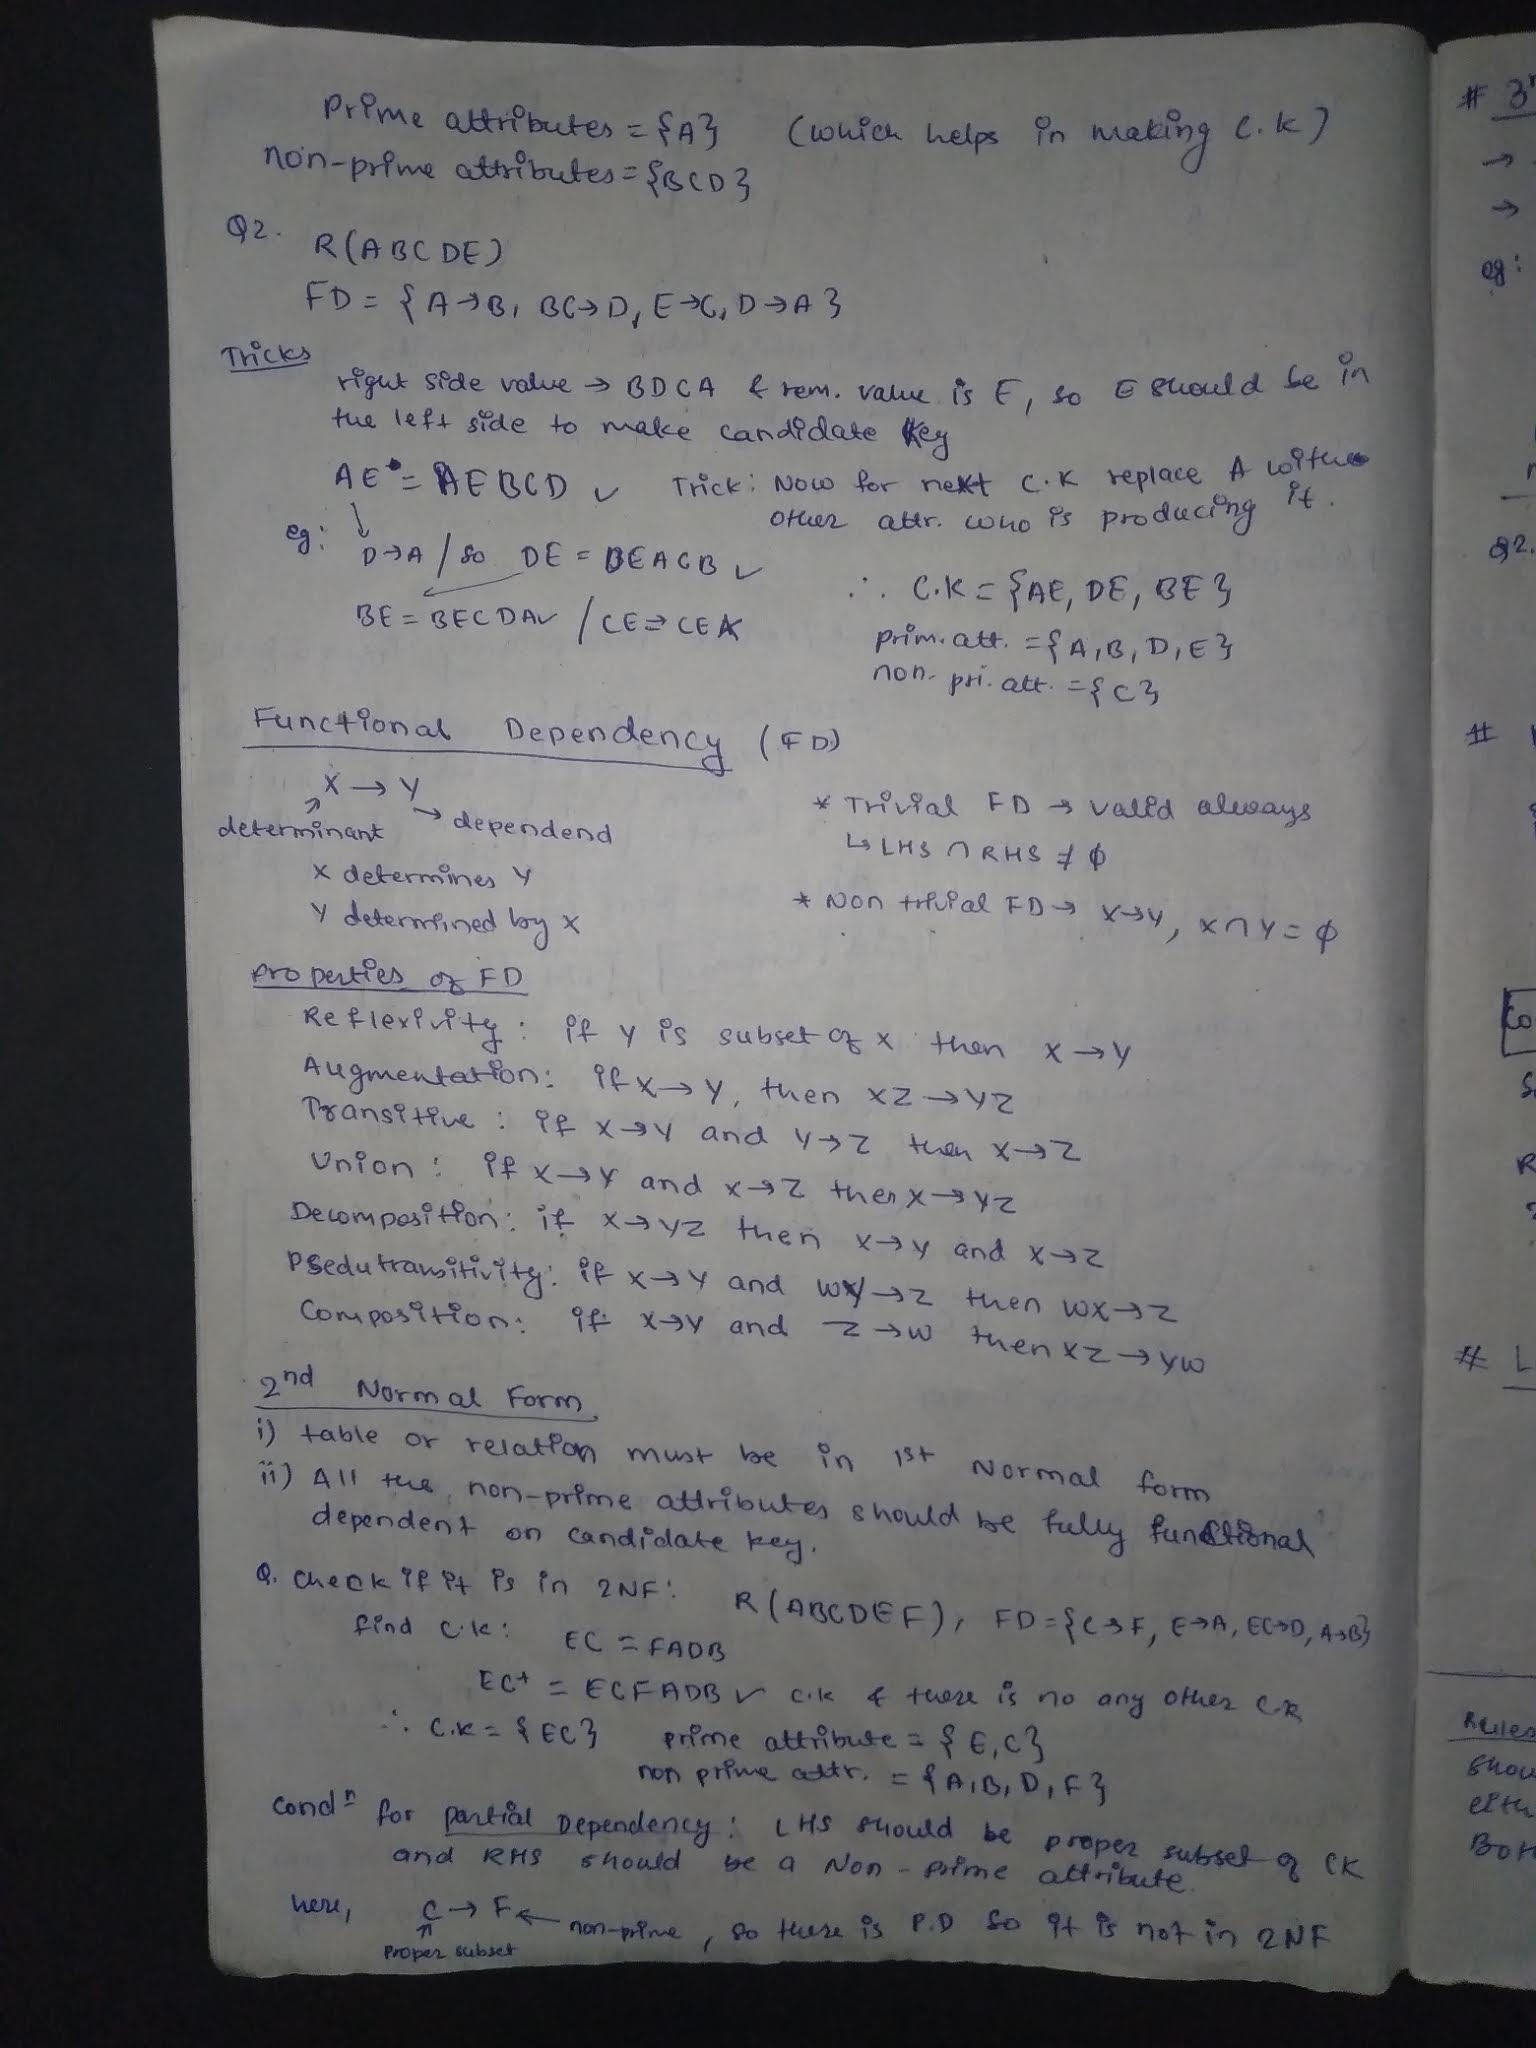 Prime attributes = {A} (which helps in making C.K)
non-prime attributes = {BCD}
Q2. R(ABCDE)
FD = {A→B, BC→D, E→C, D→A}
Tricks
right side value → BDCA & rem. value is E, so E should be in
the left side to make candidate key
AE⁺ = AEBCD ✓ Trick: Now for next C.K replace A with
other attr. who is producing it.
eg: D→A / so DE = DEACB ✓
∴ C.K = {AE, DE, BE}
BE = BECDA✓ / CE = CE X
prim. att. = {A, B, D, E}
non. pri. att. = {C}
Functional Dependency (FD)
X → Y
determinant → dependend
X determines Y
Y determined by X
* Trivial FD → valid always
↳ LHS ∩ RHS ≠ ϕ
* Non trivial FD → X→Y, X∩Y = ϕ
Properties of FD
Reflexivity: if Y is subset of X then X → Y
Augmentation: if X→Y, then XZ → YZ
Transitive: if X→Y and Y→Z then X→Z
Union: if X→Y and X→Z then X→YZ
Decomposition: if X→YZ then X→Y and X→Z
Psedutransitivity: if X→Y and WY→Z then WX→Z
Composition: if X→Y and Z→W then XZ→YW
2nd Normal Form
i) table or relation must be in 1st Normal form
ii) All the non-prime attributes should be fully functional
dependent on candidate key.
Q. Check if it is in 2NF: R(ABCDEF), FD={C→F, E→A, EC→D, A→B}
find C.K: EC = FADB
EC⁺ = ECFADB ✓ C.K & there is no any other CK
∴ C.K = {EC} prime attribute = {E, C}
non prime attr. = {A, B, D, F}
Condⁿ for partial Dependency: LHS should be proper subset of CK
and RHS should be a Non-prime attribute.
here, C → F ← non-prime, so there is P.D so it is not in 2NF
Proper subset
# 3
→
→
eg:
Q2.
#
# L
Rules